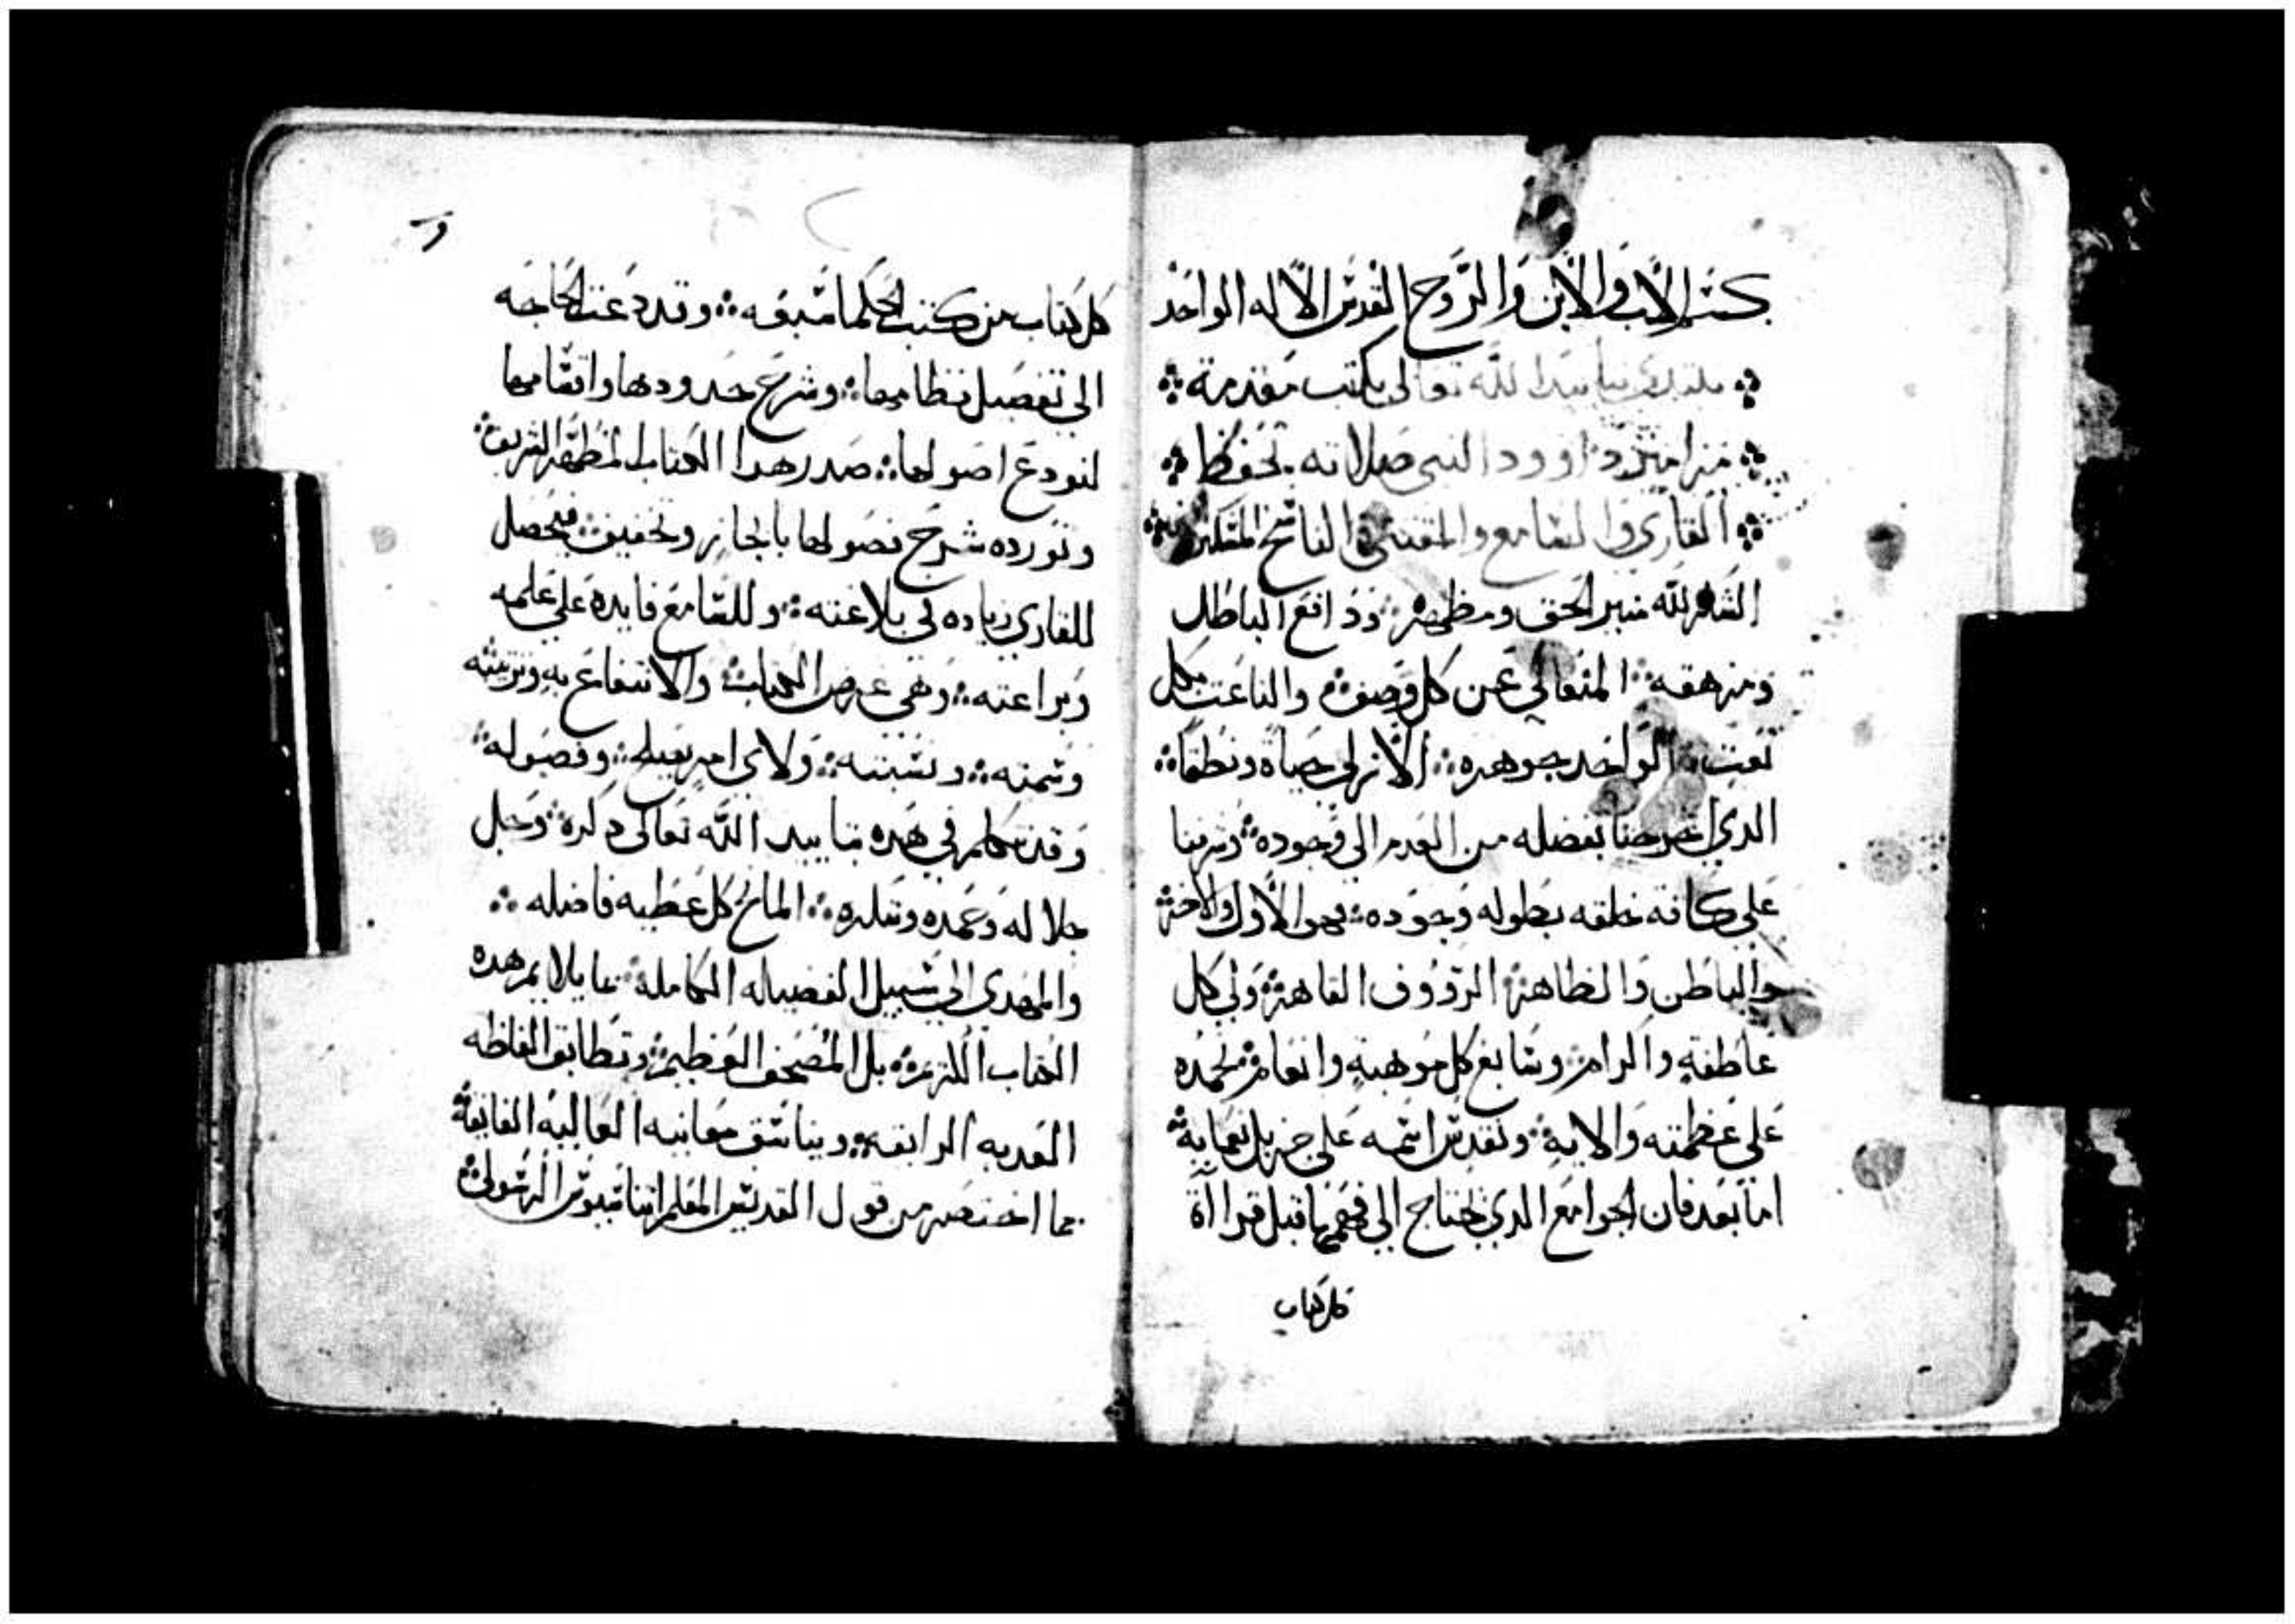 بسم الاب والابن والروح القدس الاله الواحد
نبتدي بتاييد الله تعالى بكتب مقدمة
مزامير داوود النبي صلاته تحفظ
القاري والسامع والمقتني والناسخ
الشكر لله منير الحق ومظهره ودافع الباطل
ومزهقه المتعالي عن كل وصف والناعت بكل
نعت الواحد جوهره الازلي حياة ونطقا
الدي اخرجنا بفضله من العدم الى وجوده وميزنا
على كافة خلقه بطوله وجوده فهو الاول والاخر
والباطن والظاهر الرووف القاهر ولي كل
عاطفة واكرام وسابغ كل موهبة وانعام نحمده
على عظمته والايه ونقدس اسمه على جزيل نعمايه
اما بعد فان الجوامع الدي نحتاج الى فهمها قبل قرااة
كل كتاب
كل كتاب من كتب الحكما سبقه وقد دعت الحاجه
الى تفصيل نظامها وشرح حدودها واقسامها
لنودع اصولها صدر هدا الكتاب المطهر الشريف
ونورده شرح فصولها بايجاز وتخفيف فيحصل
للقاري زياده في بلاغته وللسامع فايدة على علمه
وبراعته وهي غرض الكتاب والانتفاع به وترتيبه
وسمته ونسبته ولاي امر يصلح وفصوله
وقد نتكلم في هده بتاييد الله تعالى دكره وجل
جلاله وحمده وشكره المانح كل عطيه فاضله
والمهدي الى سبيل الفضيله الكاملة بما يلايم هده
الكتاب اللازم بل المصحف العظيم وتطابق الفاظه
العدبه الرايقه ويناسق معانيه العاليه الفايقة
مما اختصر من قول القديس المعلم اتناسيوس الرسولي